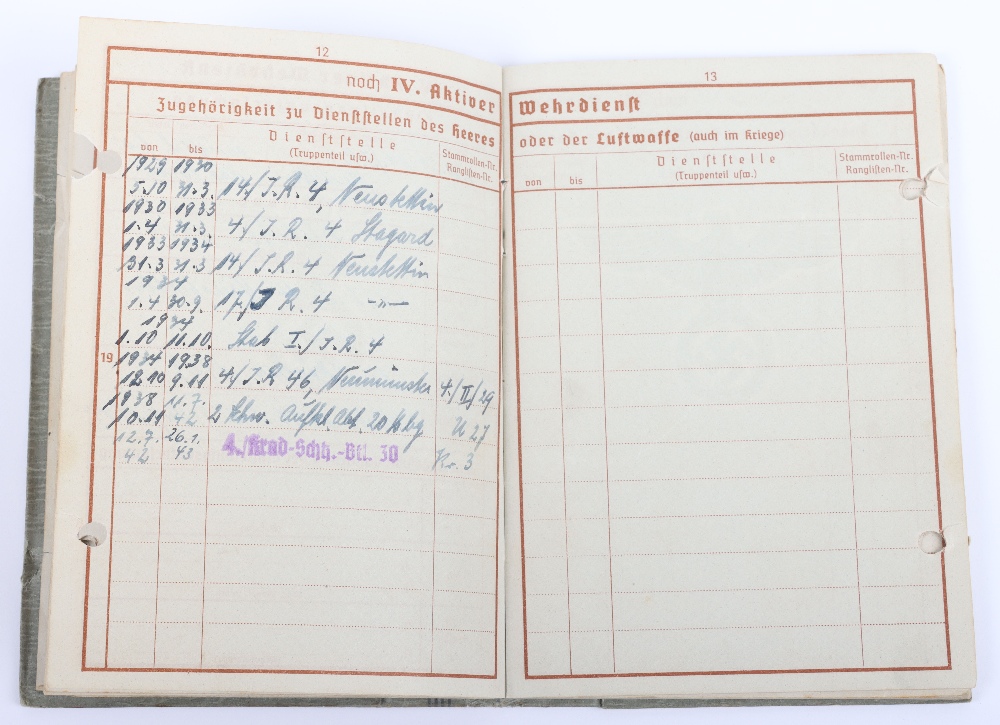 12
noch IV. Aktiver
Zugehörigkeit zu Dienststellen des Heeres
von
bis
Dienststelle
(Truppenteil usw.)
Stammrollen-Nr.
Ranglisten-Nr.
1929 1930
5.10 31.3. 14./J.R. 4, Neustettin
1930 1933
1.4 31.3. 4/J.R. 4 Stagard
1933 1934
31.3 31.3 14/J.R. 4 Neustettin
1934
1.4 30.9. 17/J R. 4 —"—
1934
1.10 11.10. Stab I./J.R. 4
19
1934 1938
12.10 9.11 4/J.R 46, Neumünster 4./II/29
1938 11.7.
10.11 42 2 Schw. Aufkl Abt. 20 U 27
12.7. 26.1.
42 43 4./Krad-Schtz.-Btl. 30 Kr. 3
13
Wehrdienst
oder der Luftwaffe (auch im Kriege)
von
bis
Dienststelle
(Truppenteil usw.)
Stammrollen-Nr.
Ranglisten-Nr.